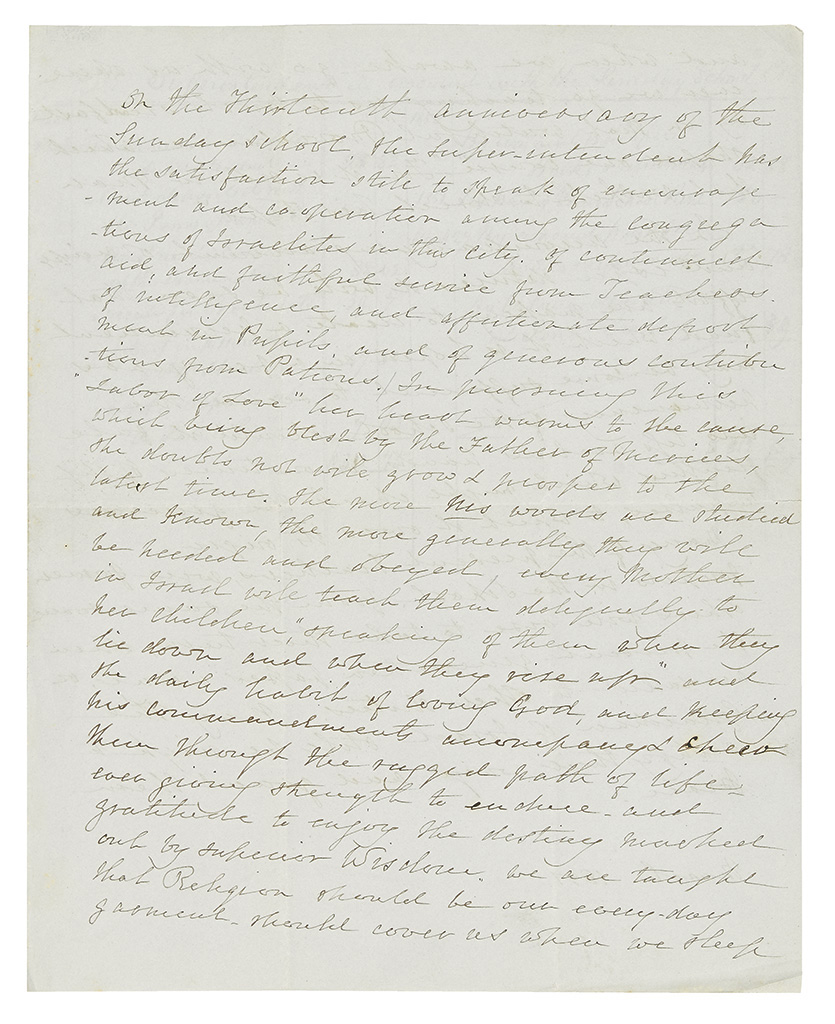 On the Thirteenth anniversary of the
Sunday school, the Super-intendent has
the satisfaction still to speak of encourage
-ment and co-operation among the congrega
-tions of Israelites in this city. of continued
aid, and faithful service from Teachers.
of intelligence, and affectionate deport
ment in Pupils, and of generous contribu
-tions from Patrons. / In pursuing this
"Labor of Love" her heart warms to the cause,
which being blest by the Father of Mercies,
she doubts not will grow & prosper to the
latest time. The more his words are studied
and known, the more generally they will
be heeded and obeyed, every Mother
in Israel will teach them diligently to
her children, "speaking of them when they
lie down and when they rise up" and
the daily habit of loving God, and keeping
his commandments accompany & cheer
them through the rugged path of life-
ever giving strength to endure - and
gratitude to enjoy the destiny marked
out by superior Wisdom. we are taught
that Religion should be our every-day
garment - should cover us when we sleep